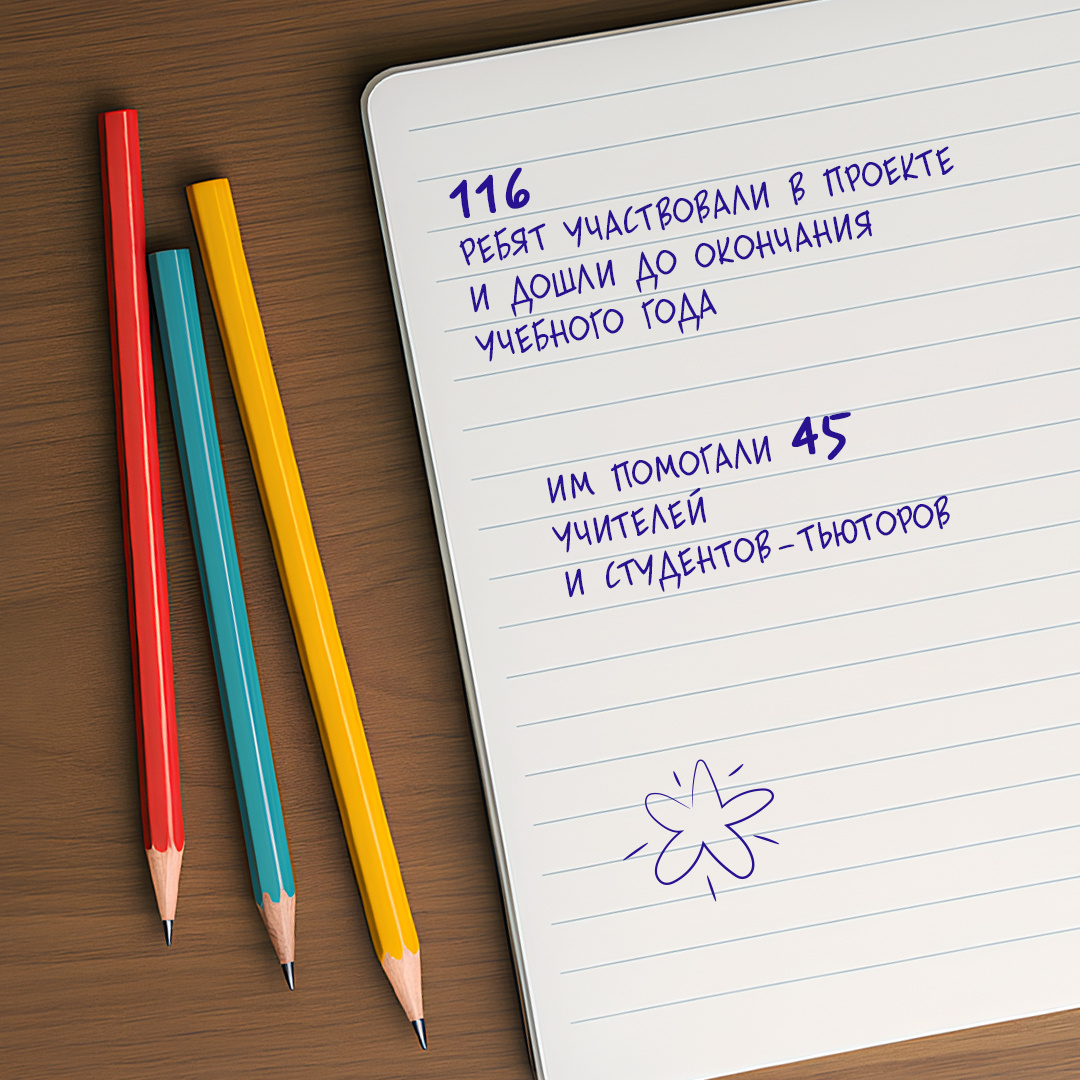 116
РЕБЯТ УЧАСТВОВАЛИ В ПРОЕКТЕ
И ДОШЛИ ДО ОКОНЧАНИЯ
УЧЕБНОГО ГОДА
ИМ ПОМОГАЛИ 45
УЧИТЕЛЕЙ
И СТУДЕНТОВ-ТЬЮТОРОВ